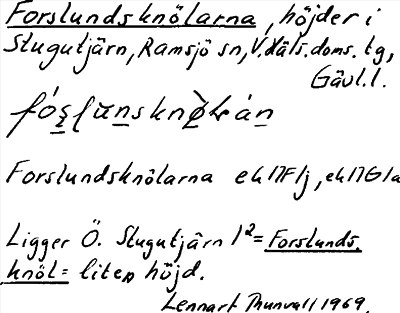 Forslundsknölarna, höjder i
Stugutjärn, Ramsjö sn, V. Häls. doms. tg,
Gävl. l.
Forslundsknölarna ek
Ligger Ö. Stugutjärn 1²= Forslunds.
knöl = liten höjd.
Lennart Thunvall 1969.